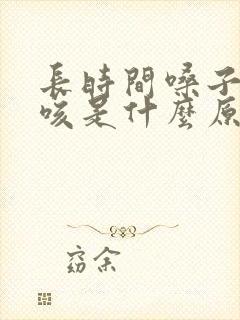 長時間嗓子
咳是什麼原
窈余